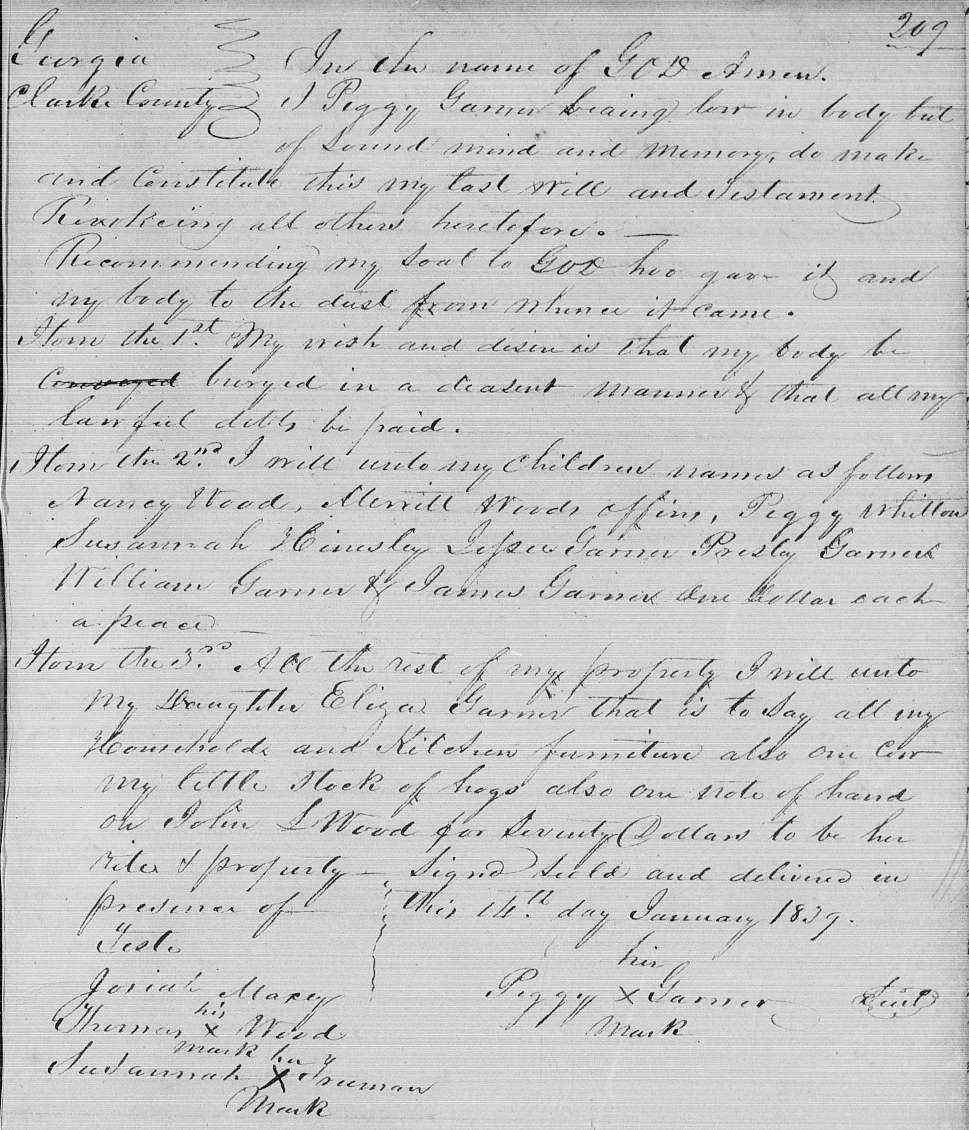 209
Georgia In the name of GOD Amen.
Clarke County I Peggy Garner beaing low in body but
of Sound mind and memory, do make
and Constitute this my last will and Testament
Revokeing all others heretofore.
Recommending my Soal to GOD hoo gave it and
my body to the dust from whence it came.
Itom the 1st. My wish and desire is that my body be
Conveyed buryed in a deasent manner & that all my
lawful debts be paid.
Itom the 2nd. I will unto my Children names as follows
Nancy Wood, Merrill Woods offins, Peggy Whitton
Susannah Hinesley Garner Presley Garner
William Garner & James Garner One Dollar each
a peace
Itom the 3rd. All the rest of my property I will unto
my Daughter Eliza Garner that is to Say all my
Households and Kitchen furniture also one Cow
my little Stock of hogs also one note of hand
on John L Wood for Seventy Dollars to be her
rites & property Signd Seeld and delivered in
presence of this 14th. day January 1839.
Teste
Josiah Maxey
his
Thomas X Wood
mark
her
Susannah X Truman
Mark
her
Peggy X Garner Seal
Mark